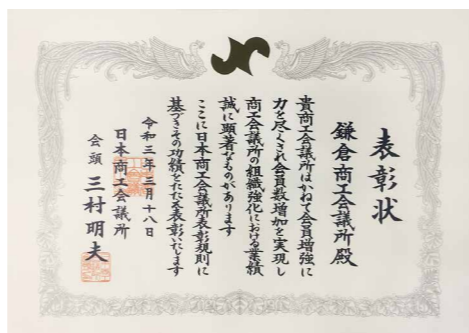 表彰状
鎌倉商工会議所殿
貴商工会議所はかねて会員増強に
力を尽くされ会員数増加を実現し
商工会議所の組織強化における業績
誠に顕著なものがあります
ここに日本商工会議所表彰規則に
基づきその功績をたたえ表彰いたします
令和三年三月十八日
日本商工会議所
会頭 三村明夫